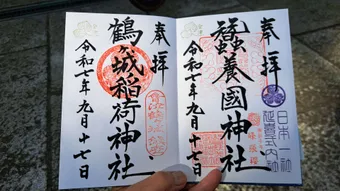 奉拝
蠶養國神社
令和七年九月十七日
日本一社
延喜式内社
奉拝
鶴ヶ城稲荷神社
令和七年九月十七日